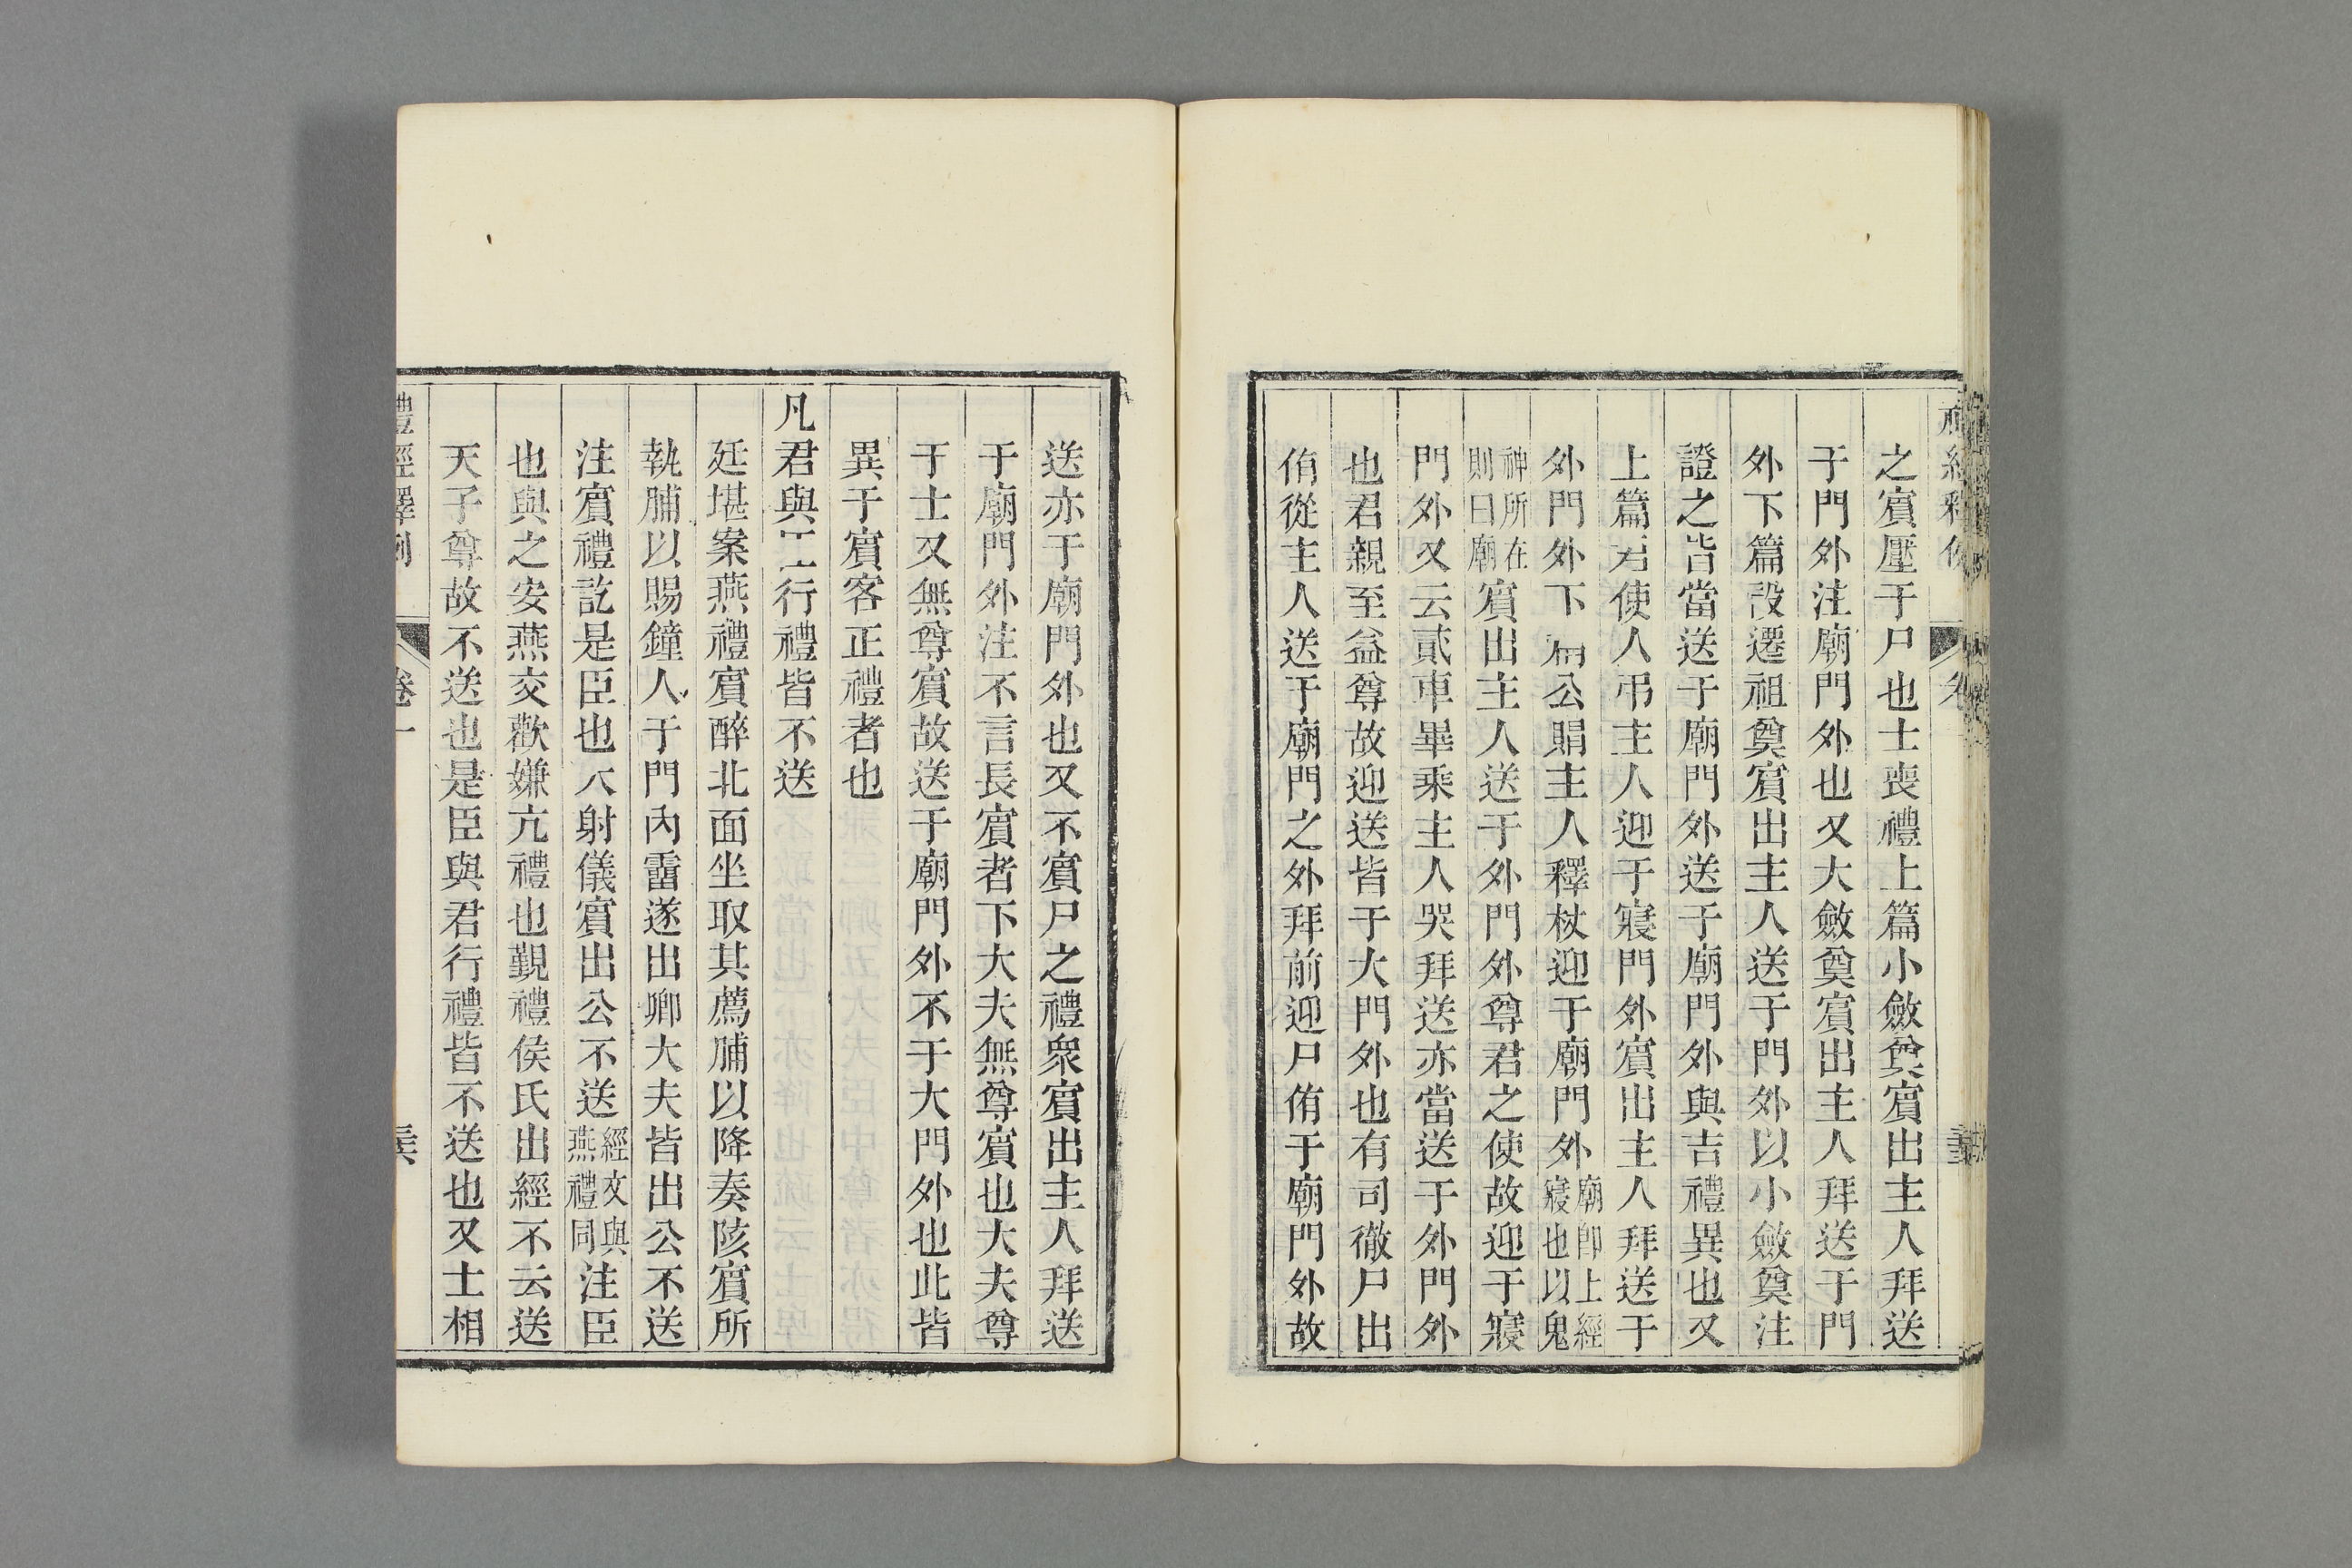 之賓壓于尸也士喪禮上篇小斂奠賓出主人拜送
于門外注廟門外也又大斂奠賓出主人拜送于門
外下篇殷遷祖奠賓出主人送于門外以小斂奠注
證之皆當送于廟門外送于廟門外與吉禮異也又
上篇君使人弔主人迎于寢門外賓出主人拜送于
外門外下篇公賵主人釋杖迎于廟門外廟卽上經寢也以鬼
神所在則曰廟賓出主人送于外門外尊君之使故迎于寢
門外又云貳車畢乘主人哭拜送亦當送于外門外
也君親至益尊故迎送皆于大門外也有司徹尸出
侑從主人送于廟門之外拜前迎尸侑于廟門外故
送亦于廟門外也又不賓尸之禮衆賓出主人拜送
于廟門外注不言長賓者下大夫無尊賓也大夫尊
于士又無尊賓故送于廟門外不于大門外也此皆
異于賓客正禮者也
凡君與行禮皆不送
廷堪案燕禮賓醉北面坐取其薦脯以降奏陔賓所
執脯以賜鐘人于門內霤遂出卿大夫皆出公不送
注賓禮訖是臣也大射儀賓出公不送經文與燕禮同注臣
也與之安燕交歡嫌亢禮也覲禮侯氏出經不云送
天子尊故不送也是臣與君行禮皆不送也又士相
禮經釋例 卷一